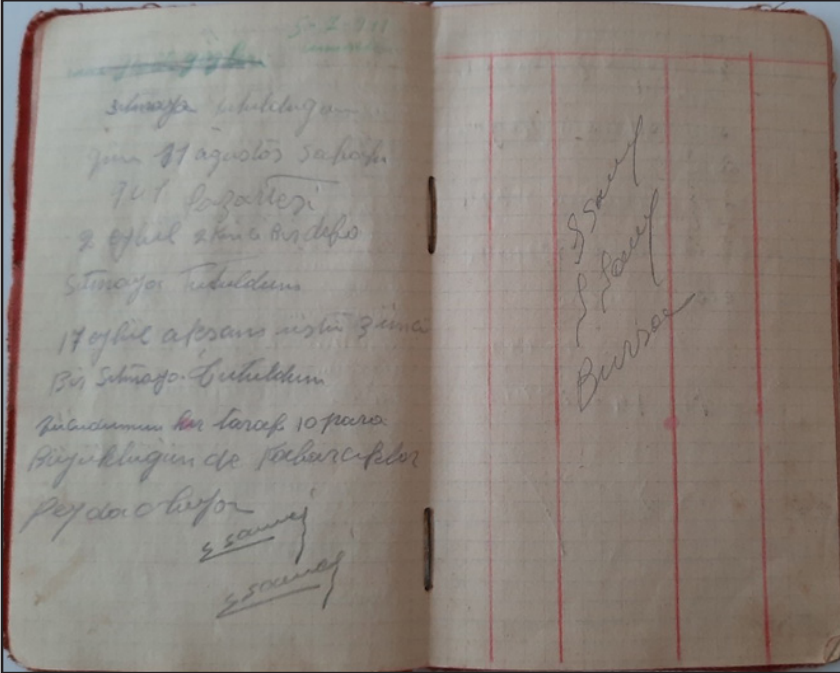 Sıtmaya tutulduğum
gün 11 ağustos Sabahı
941 Pazartesi
2 eylül ikinci Bir defa
Sıtmaya Tutuldum
17 eylül akşam üstü 3 üncü
Bir Sıtmaya tutuldum
Vücudumun her taraf 10 para
Büyüklüğün de Kabarcıklar
Peyda oluyor
Bursa